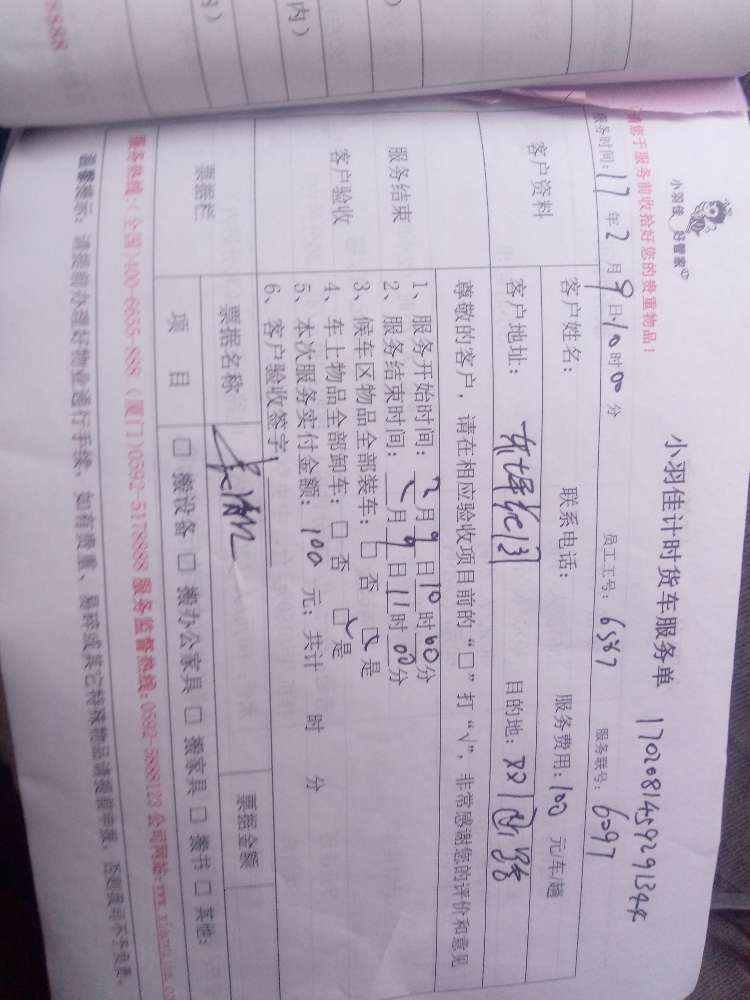 小羽佳 好管家
小羽佳计时货车服务单
请您于服务前收拾好您的贵重物品！
服务时间：17年2月9日10时00分 员工工号：6587 服务联号：6097
客户资料
客户姓名： 联系电话： 服务费用：100元/车趟
客户地址： 目的地：
尊敬的客户，请在相应验收项目前的“□”打“√”，非常感谢您的评价和意见
服务结束
客户验收
1、服务开始时间：2月9日10时00分
2、服务结束时间：2月9日11时00分
3、候车区物品全部装车：□ 否 □ 是
4、车上物品全部卸车：□ 否 □ 是
5、本次服务实付金额：100元；共计 时 分
6、客户验收签字：
票据栏
票据名称 票据金额
项目 □ 搬设备 □ 搬办公家具 □ 搬家具 □ 搬书 □ 其他：
服务热线：(全国)400-6655-888 (厦门)0592-5178888 服务监督热线：0592-5888123 公司网站：
温馨提示：请提前办理好物业通行手续，如有贵重、易碎或其它特殊物品请提前申报，否则我司不予负责。
8888
内)